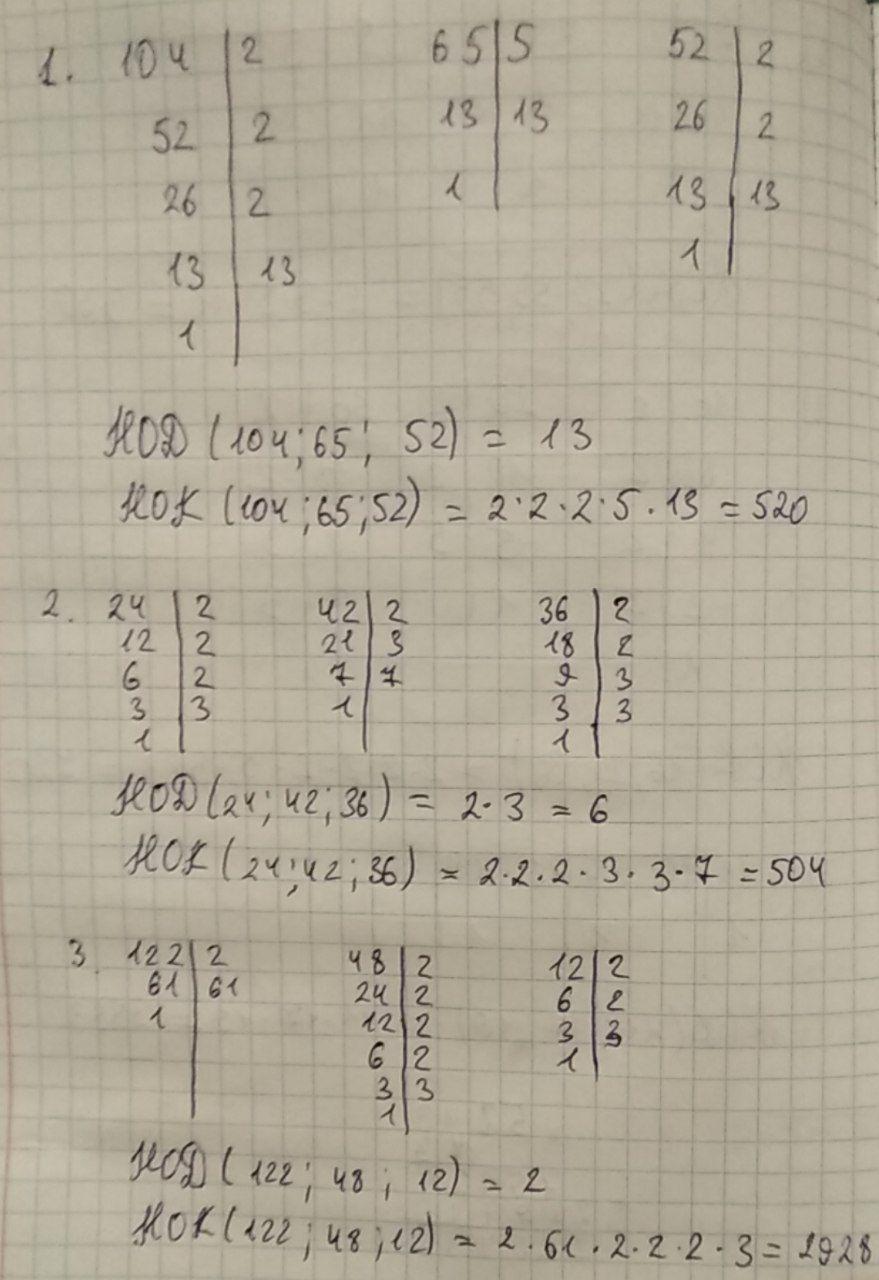 1. 104 | 2 65 | 5 52 | 2
52 | 2 13 | 13 26 | 2
26 | 2 1 | 13 | 13
13 | 13 1 |
1 |
НОД (104; 65; 52) = 13
НОК (104; 65; 52) = 2·2·2·5·13 = 520
2. 24 | 2 42 | 2 36 | 2
12 | 2 21 | 3 18 | 2
6 | 2 7 | 7 9 | 3
3 | 3 1 | 3 | 3
1 | 1 |
НОД (24; 42; 36) = 2·3 = 6
НОК (24; 42; 36) = 2·2·2·3·3·7 = 504
3. 122 | 2 48 | 2 12 | 2
61 | 61 24 | 2 6 | 2
1 | 12 | 2 3 | 3
6 | 2 1 |
3 | 3
1 |
НОД (122; 48; 12) = 2
НОК (122; 48; 12) = 2·61·2·2·2·3 = 2928